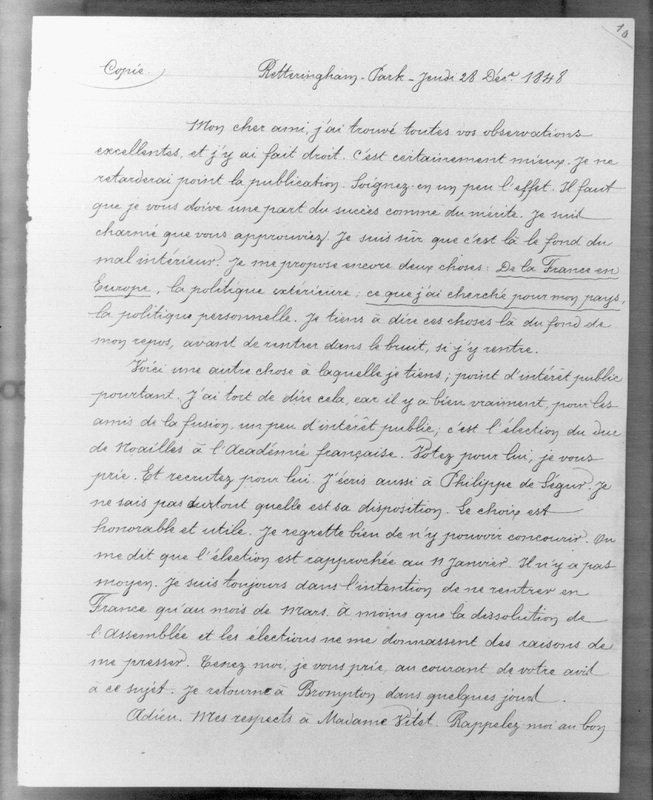 10
Copie Ketteringham-Park - Jeudi 28 Déc.re 1848
Mon cher ami, j'ai trouvé toutes vos observations
excellentes, et j'y ai fait droit. C'est certainement mieux. Je ne
retarderai point la publication. Soignez-en un peu l'effet. Il faut
que je vous doive une part du succès comme du mérite. Je suis
charmé que vous approuviez. Je suis sûr que c'est là le fond du
mal intérieur. Je me propose encore deux choses: De la France en
Europe, la politique extérieure; ce que j'ai cherché pour mon pays,
la politique personnelle. Je tiens à dire ces choses là du fond de
mon repos, avant de rentrer dans le bruit, si j'y rentre.
Voici une autre chose à laquelle je tiens; point d'intérêt public
pourtant. J'ai tort de dire cela, car il y a bien vraiment, pour les
amis de la fusion, un peu d'intérêt public; c'est l'élection du Duc
de Noailles à l'Académie française. Votez pour lui, je vous
prie. Et recrutez pour lui. J'écris aussi à Philippe de Ségur. Je
ne sais pas surtout quelle est sa disposition. Le choix est
honorable et utile. Je regrette bien de n'y pouvoir concourir. On
me dit que l'élection est rapprochée au 11 Janvier. Il n'y a pas
moyen. Je suis toujours dans l'intention de ne rentrer en
France qu'au mois de Mars. à moins que la dissolution de
l'Assemblée et les élections ne me donnassent des raisons de
me presser. Tenez moi, je vous prie, au courant de votre avis
à ce sujet. Je retourne à Brompton dans quelques jours.
Adieu. Mes respects à Madame Vitet. Rappelez moi au bon